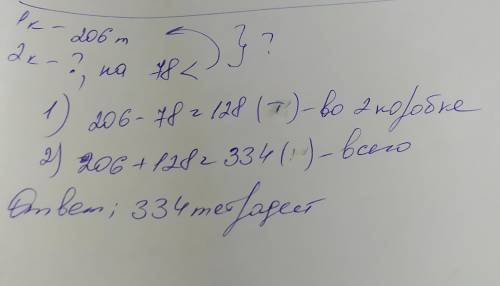 1к – 206 т
2к – ?, на 78 < } ?
1) 206 - 78 = 128 (т) – во 2 коробке
2) 206 + 128 = 334 ( ) – всего
Ответ; 334 тетрадест